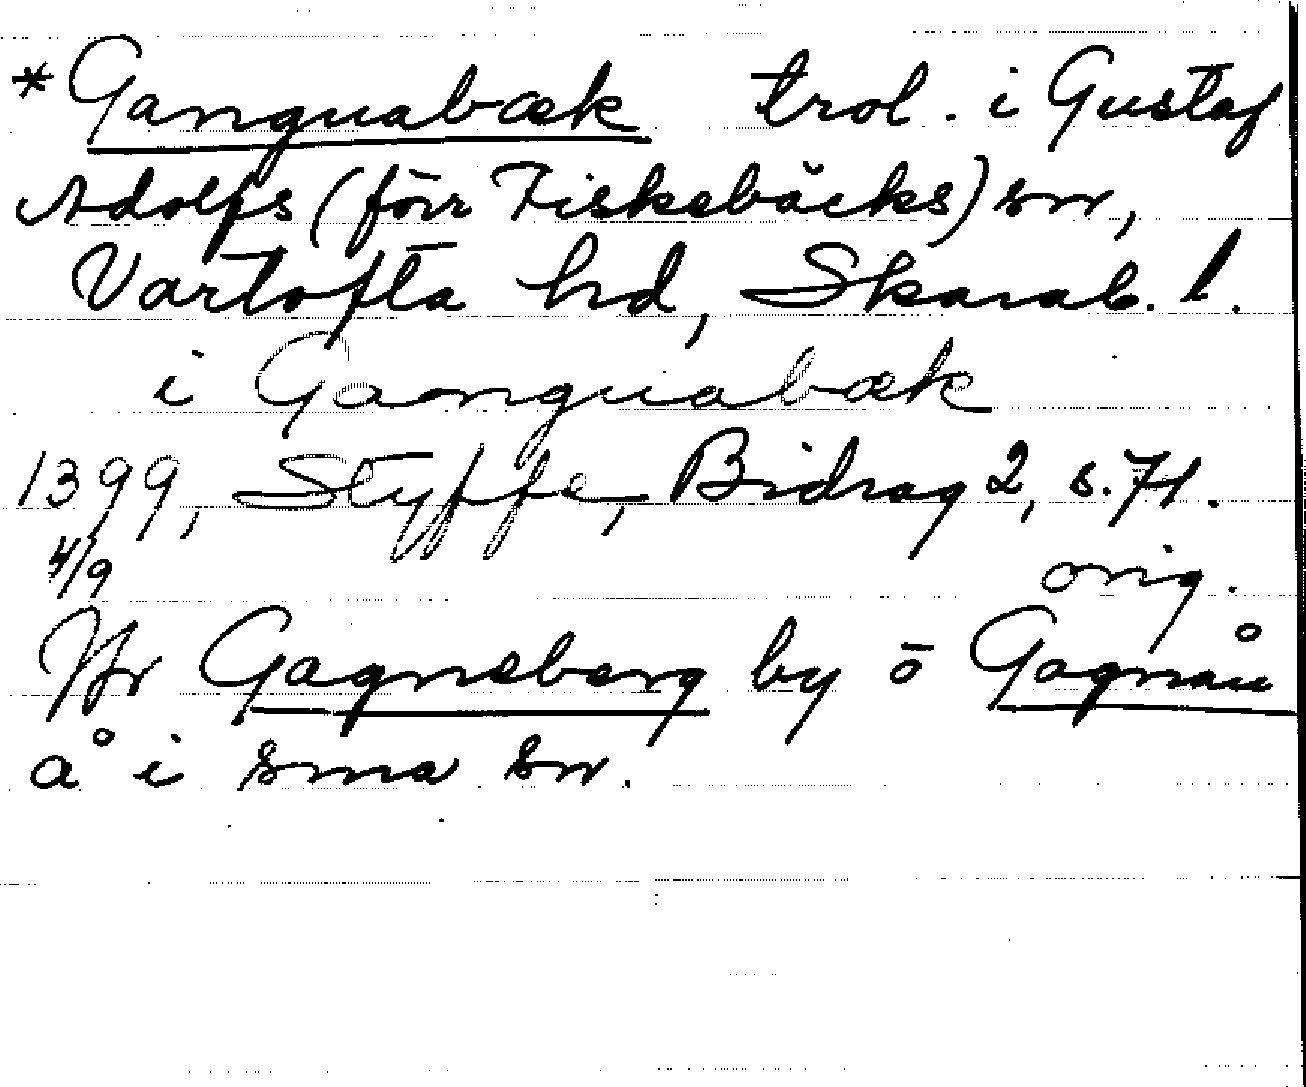 *Ganguabæk trol. i Gustaf
Adolfs (förr Fiskebäcks) sn,
Vartofta hd, Skarab. l.
i Ganguabæk
1399, Styffe, Bidrag 2, s. 71.
4/9 orig.
Jfr Gagnsberg by o Gagnån
å i sma sn.